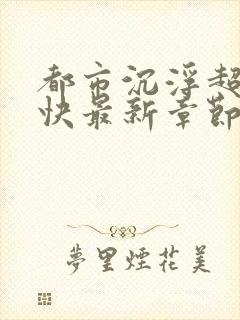 都市沉浮超
快最新章節
夢里煙花美